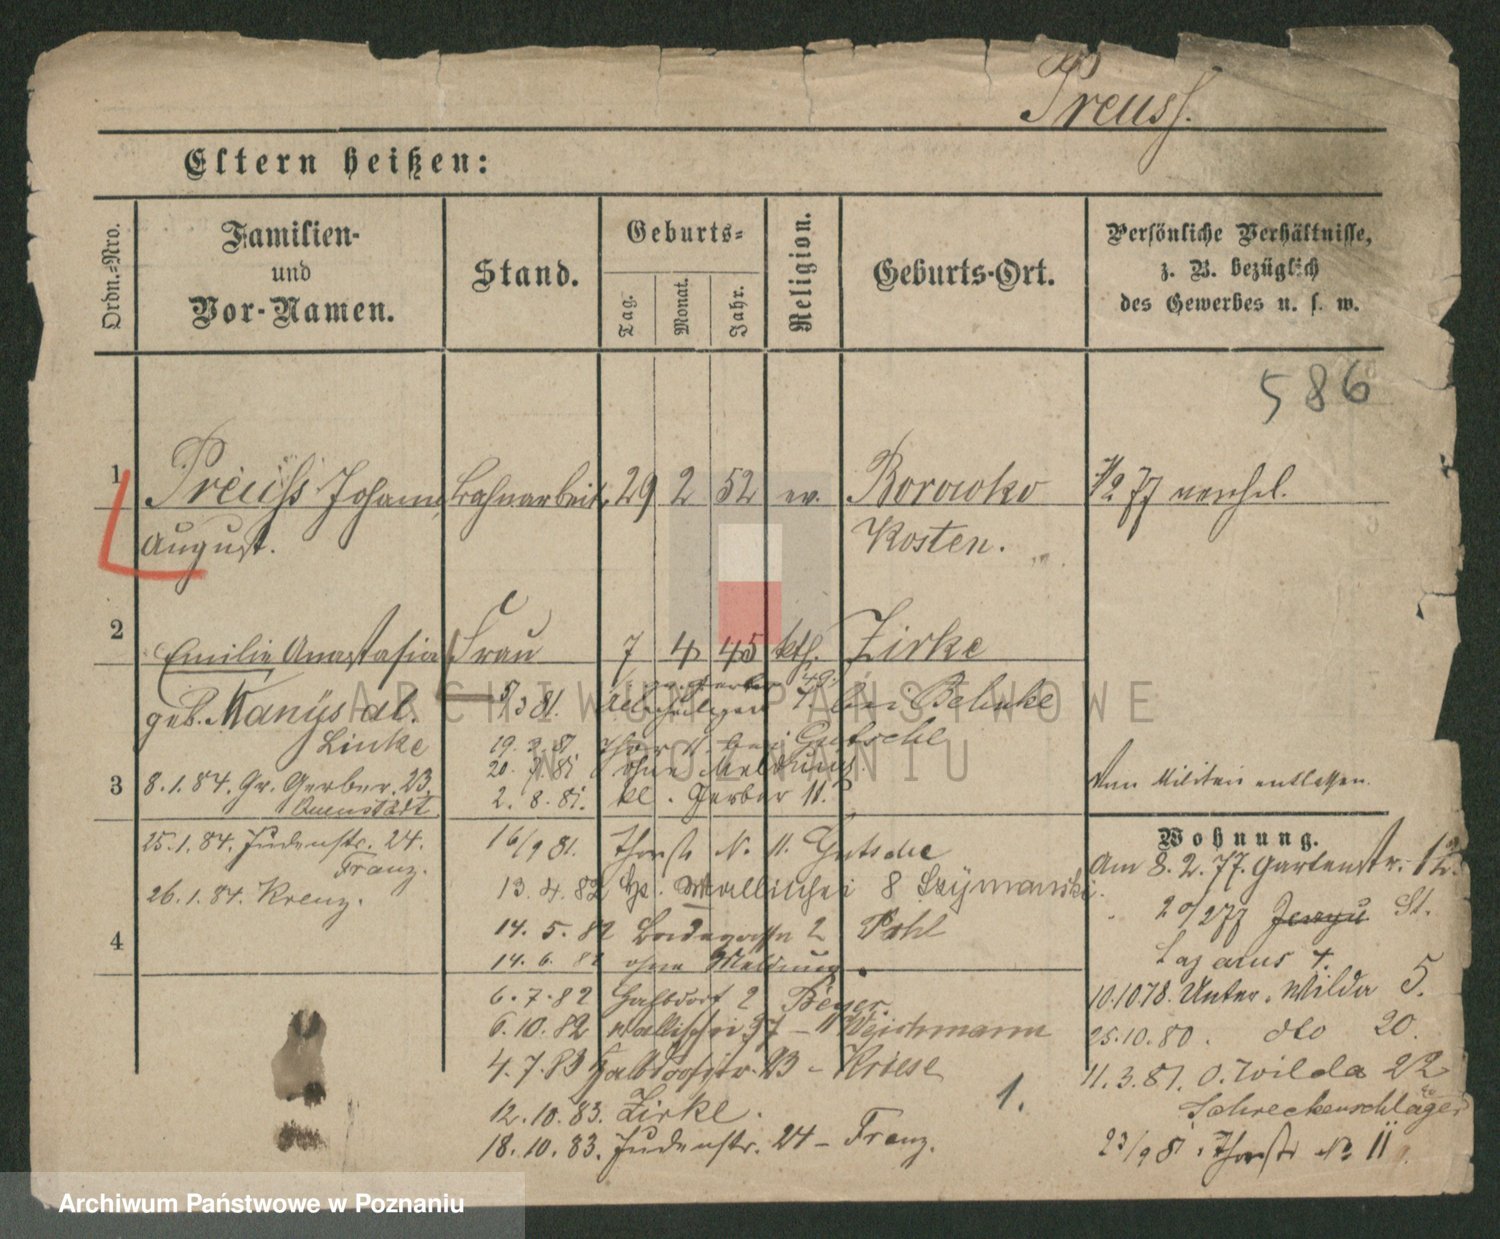 Preuss.
Eltern heißen:
Ordn.-Nro.
Familien-
und
Vor-Namen.
Stand.
Geburts-
Tag.
Monat.
Jahr.
Religion.
Geburts-Ort.
Persönliche Verhältnisse,
z. B. bezüglich
des Gewerbes u. s. w.
586
1
Preuss Johann Bahnarbeit. 29 2 52 ev. Borowko 7/2 77 verehel.
August. Kosten.
2
Emilie Anastasia Frau 7 4 45 kth. Zirke
geb.
Linke
3 8.1.84. Gr. Gerber. 23.
25.1.84. Judenstr. 24.
Franz.
26.1.84. Krenz.
4
5/3 81. bei Behnke
19. 3. 81. bei Gutsche
20. 7. 81 ohne Meldung.
2. 8. 81. kl. Gerber 11.
16/9 81. Thorstr N. 11. Gutsche
13. 4. 82 Wallischei 8 Szymanski.
14. 5. 82 2 Pohl
14. 6. 82 ohne Meldung.
6. 7. 82 2 Beyer.
6. 10. 82 Wallischei 37 - Weichmann
4. 7. 83 23 - Kriese
12. 10. 83. Zirke.
18. 10. 83. Judenstr. 24 - Franz.
1.
Vom Militair entlassen.
Wohnung.
Am 8. 2. 77. Gartenstr. 12.
St.
Lazarus 4.
10.10.78. Unter. Wilda 5.
25.10.80. dto 20.
11.3.81. O. Wilda 22
Schreckenschläger
23/9 81. Thorstr No 11
ARCHIWUM PAŃSTWOWE
W POZNANIU
Archiwum Państwowe w Poznaniu